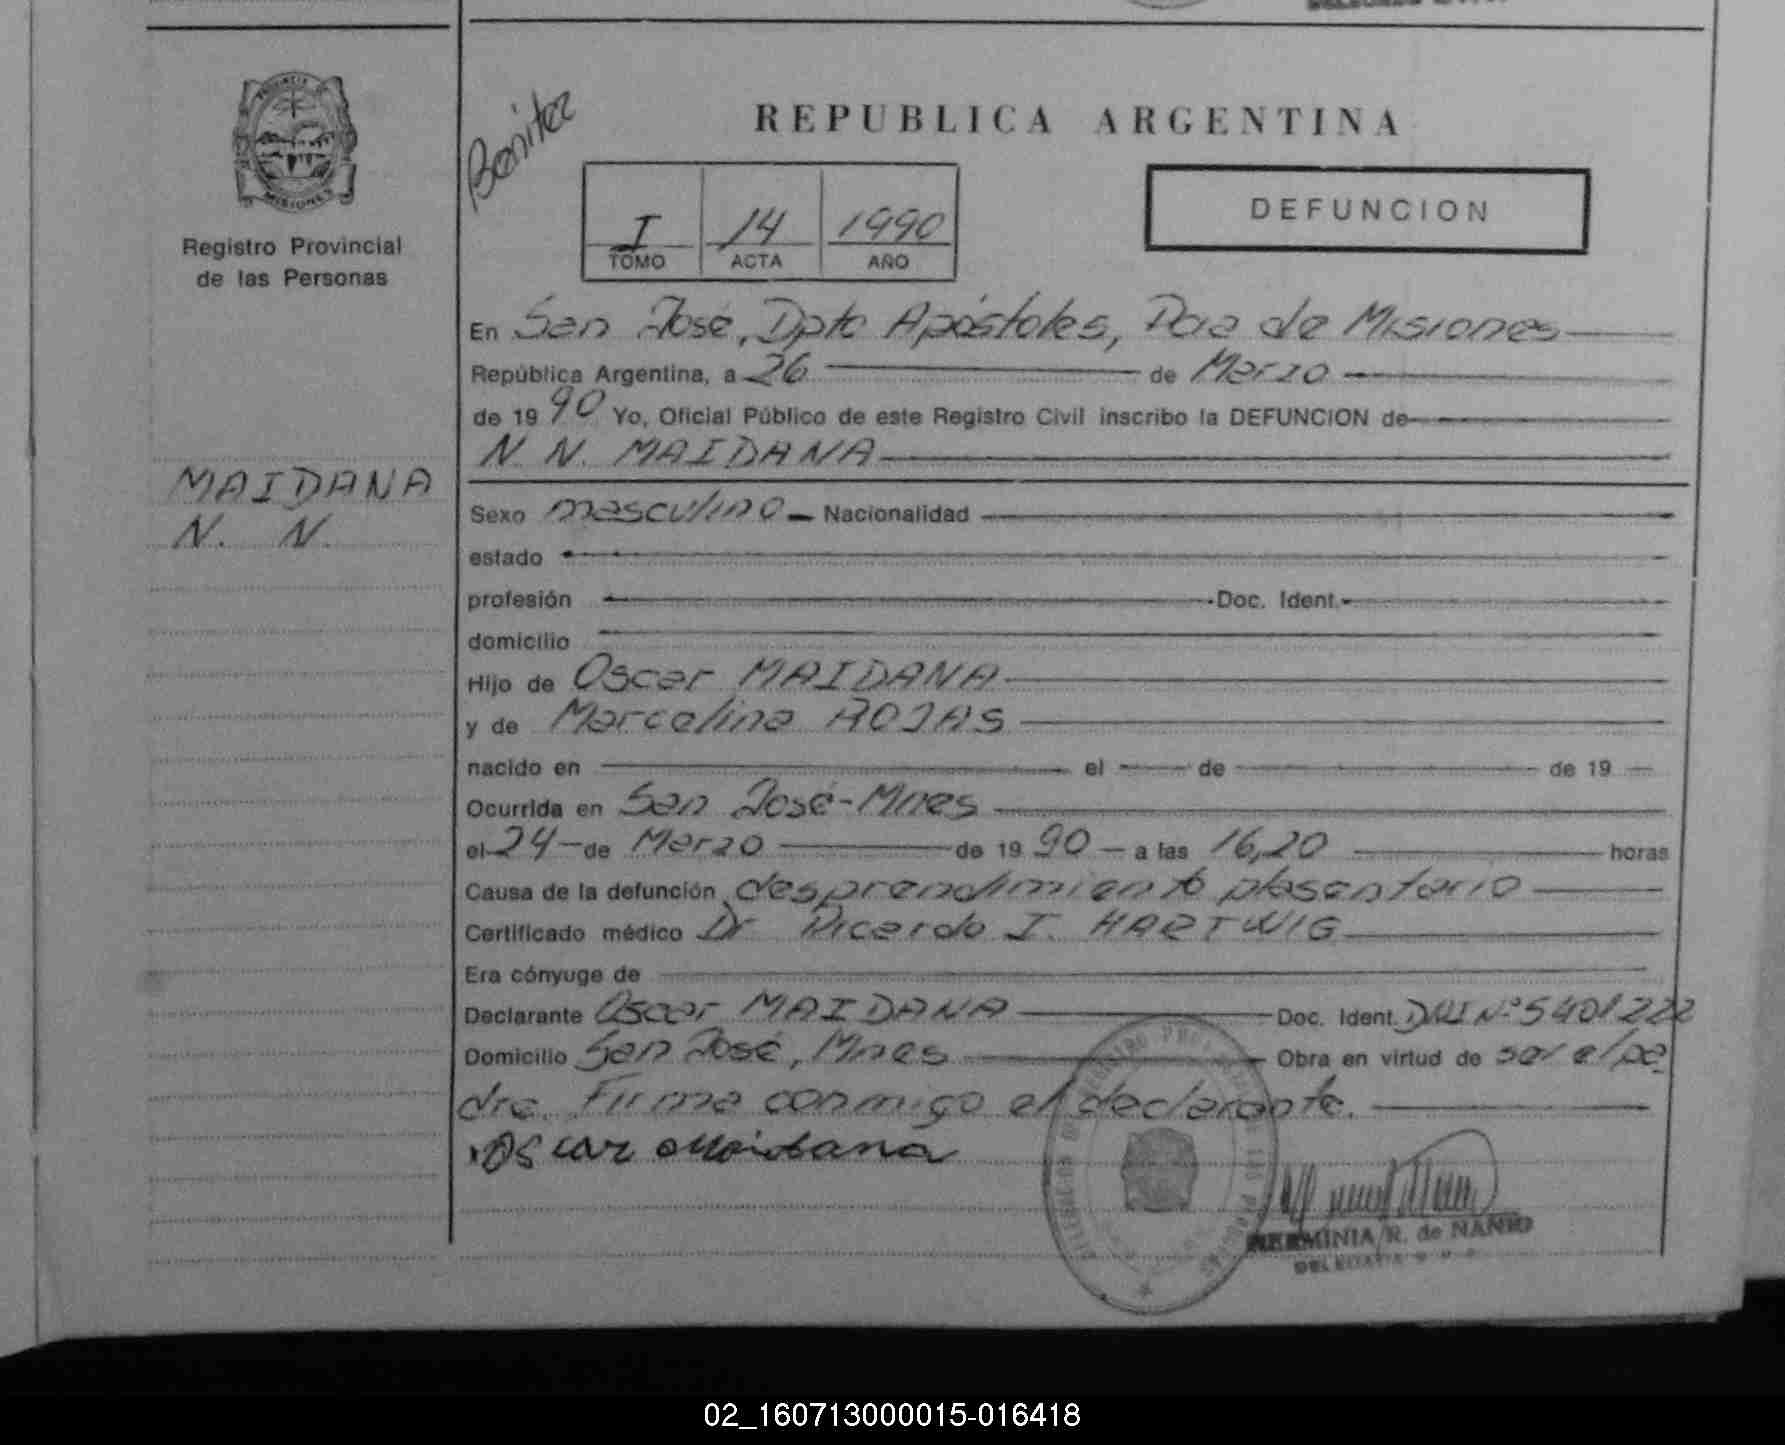 PROVINCIA
MISIONES
Registro Provincial
de las Personas
MAIDANA
N. N.
Benitez
REPUBLICA ARGENTINA
I 14 1990
TOMO ACTA AÑO
DEFUNCION
En San José, Dpto Apóstoles, Pcia de Misiones
República Argentina, a 26 de Marzo
de 1990 Yo, Oficial Público de este Registro Civil inscribo la DEFUNCION de
N. N. MAIDANA
Sexo masculino Nacionalidad
estado
profesión Doc. Ident.
domicilio
Hijo de Oscar MAIDANA
y de Marcelina ROJAS
nacido en el de de 19
Ocurrida en San José-Mnes
el 24 de Marzo de 1990 a las 16,20 horas
Causa de la defunción desprendimiento plasentario
Certificado médico Dr Ricardo I. HARTWIG
Era cónyuge de
Declarante Oscar MAIDANA Doc. Ident. DNI Nº 5401222
Domicilio San José, Mnes Obra en virtud de ser el pa
dre. Firma conmigo el declarante.
Oscar Maidana
HERMINIA R. de NANIO
DELEGADA
02_160713000015-016418